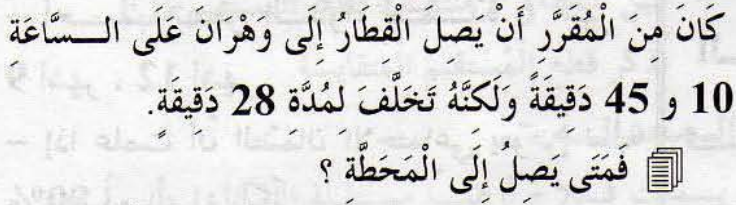 كَانَ مِنَ الْمُقَرَّرِ أَنْ يَصِلَ الْقِطَارُ إِلَى وَهْرَانَ عَلَى الـسَّاعَةِ
10 و 45 دَقِيقَةً وَلَكنَّهُ تَخَلَّفَ لِمُدَّةِ 28 دَقِيقَةٍ.
فَمَتَى يَصِلُ إِلَى الْمَحَطَّةِ ؟